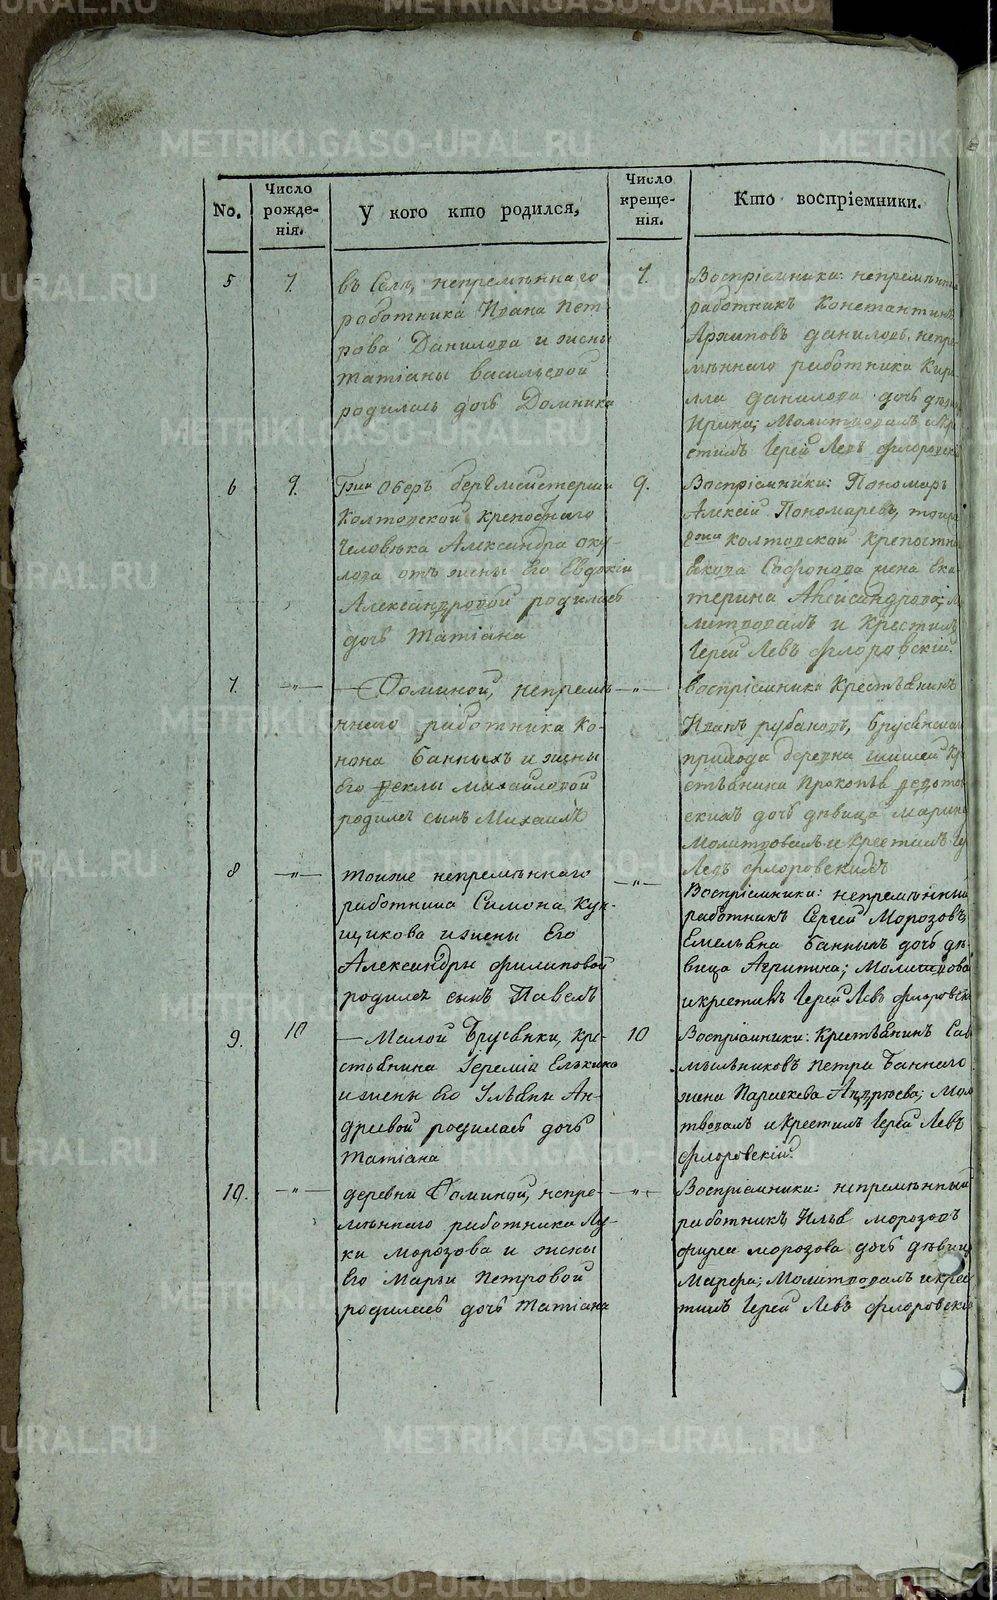 METRIKI.GASO-URAL.RU
No.
Число рожде-нія.
У кого кто родился,
Число креще-нія.
Кто воспріемники.
5
7.
въ Селѣ, непремѣннаго
работника Ивана Пет-
рова Данилова и жены
Татіаны Васильевой
родилась дочь Домника
7.
Воспріемники: непремѣнный
работникъ Константинъ
Архиповъ Даниловъ, непре-
мѣннаго работника Кири-
лла Данилова дочь дѣвица
Ирина; Молитвовалъ и Кре-
стилъ Іерей Левъ Флоровскій
6
9.
Гжи Оберъ бергмейстерши
Колтовской крепостнаго
Человѣка Александра Оку-
лова отъ жены Его Евдокіи
Александровой родилась
дочь Татіана
9.
Воспріемники: Пономарь
Алексій Пономаревъ, тояже
Гжи Колтовской крепостна
Софонова жена Ека-
терина Александрова; Мо-
литвовалъ и Крестилъ
Іерей Левъ Флоровскій.
7.
—"—
— Фоминой, непремѣ-
ннаго работника Ко-
нона Банныхъ и жены
Его Феклы Михайловой
родился сынъ Михаилъ
—"—
Воспріемники Крестьянинъ
Иванъ Рубановъ, Брусянскаго
прихода деревни Кр-
стьянина Прокопья
дочь дѣвица Марина
Молитвовалъ и Крестилъ Іе
Левъ Флоровскій
8
—"—
тоиже непремѣннаго
работника Симона Кун-
щикова и жены Его
Александры Филиповой
родился сынъ Павелъ
—"—
Воспріемники: непремѣнный
работникъ Сергей Морозовъ,
Емельяна Банныхъ дочь дѣ-
вица Агрипина; Молитвова
и крестилъ Іерей Левъ Флоровскій
9.
10
— Малой Брусянки, кре-
стьянина Іереміи Елькина
и жены Его Ульяны Ан-
дреевой родилась дочь
Татіана
10
Воспріемники: Крестьянинъ Сав
Мыльниковъ Петра Баннаго
жена Параскева Андреева; Мол
твовалъ и Крестилъ Іерей Левъ
Флоровскій.
10.
—"—
деревни Фоминой, непре-
мѣннаго работника Лу-
ки Морозова и жены
Его Марьи Петровой
родилась дочь Татіана
—"—
Воспріемники: непремѣнный
работникъ Илья Морозовъ
Фирса Морозова дочь дѣвица
Марфа; Молитвовалъ и кре-
стилъ Іерей Левъ Флоровскій